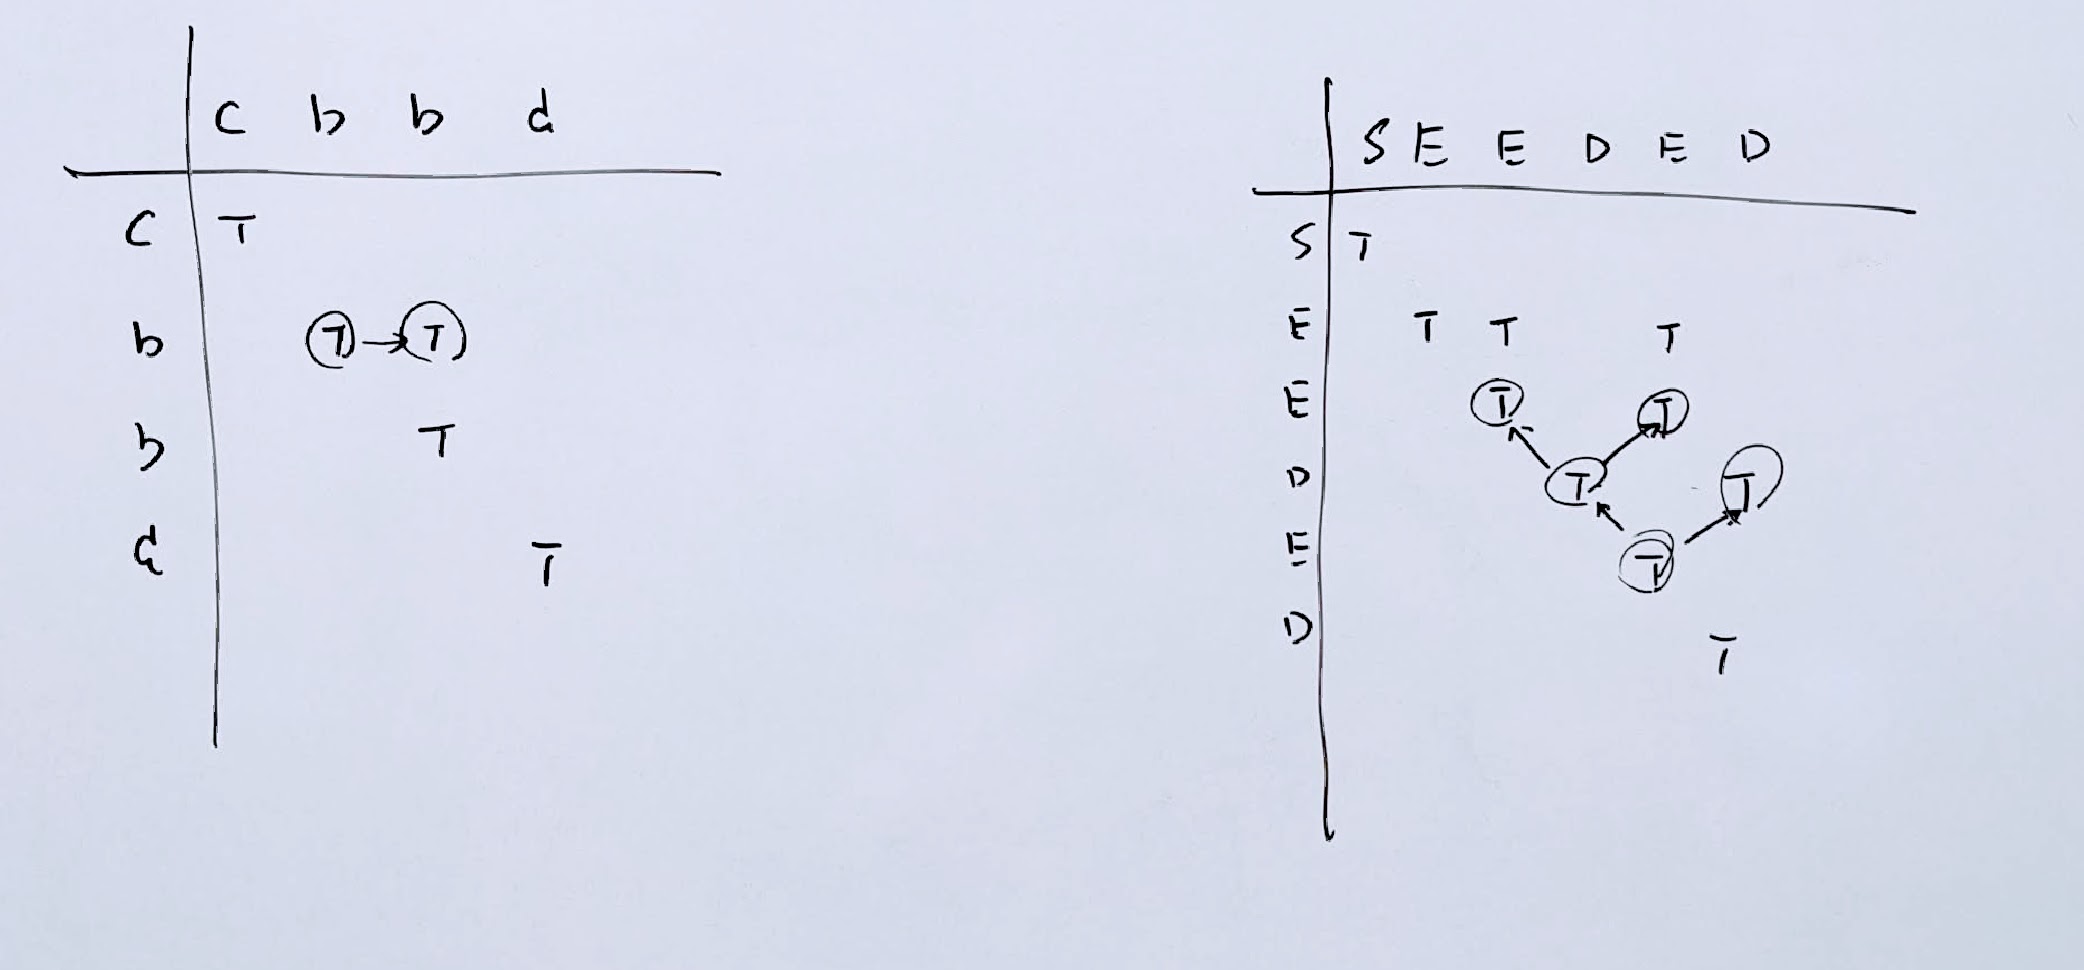 c b b d
c T
b T T
b T
d T
S E E D E D
S T
E T T T
E T T
D T T
E T
D T